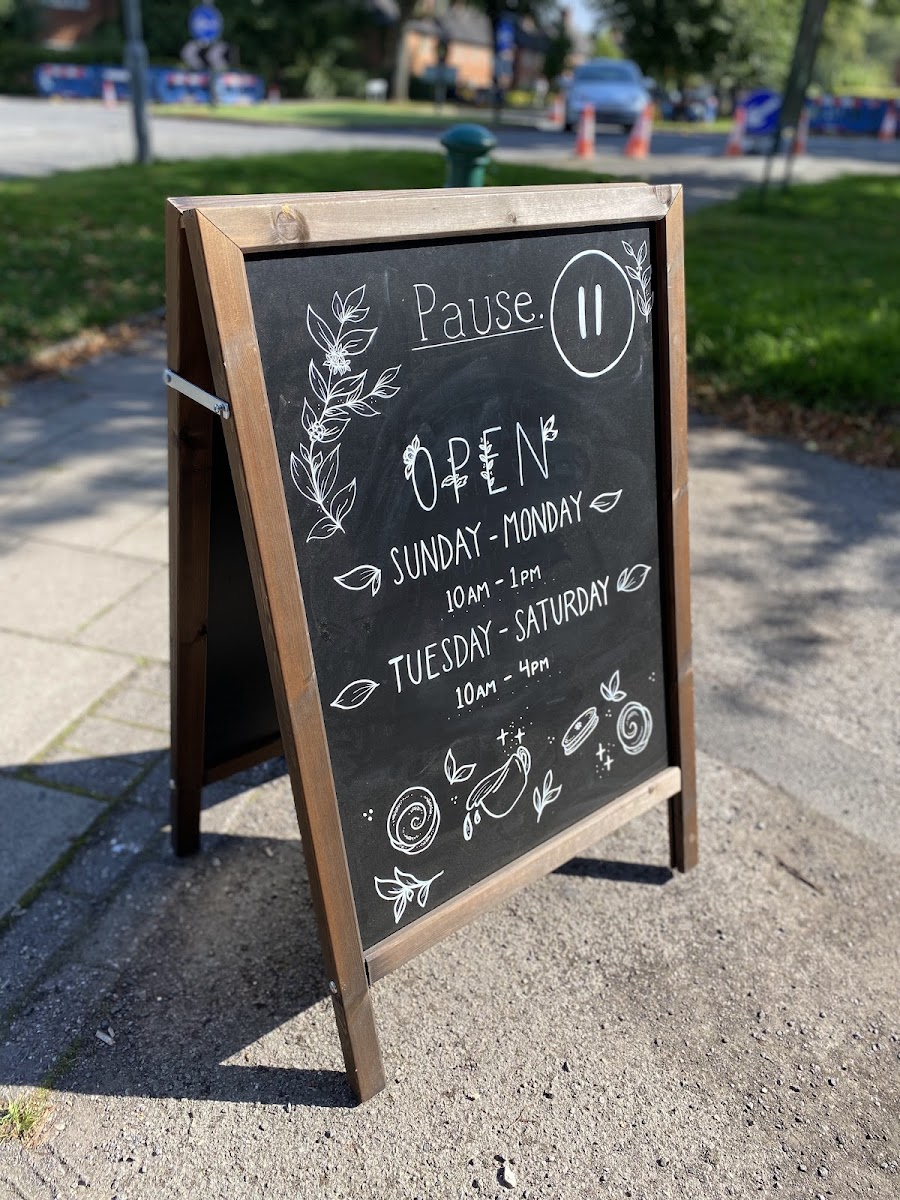 Pause.
OPEN
SUNDAY - MONDAY
10AM - 1PM
TUESDAY - SATURDAY
10AM - 4PM